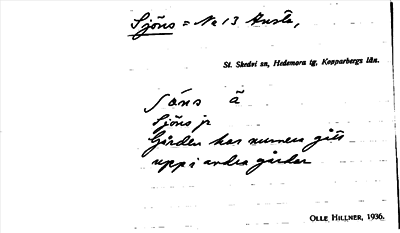 Sjöns = No 13 Aursta,
St. Skedvi sn, Hedemora tg, Kopparbergs län.
Sjöns jr
Gården har numera gått
upp i andra gårdar
OLLE HILLNER, 1936.